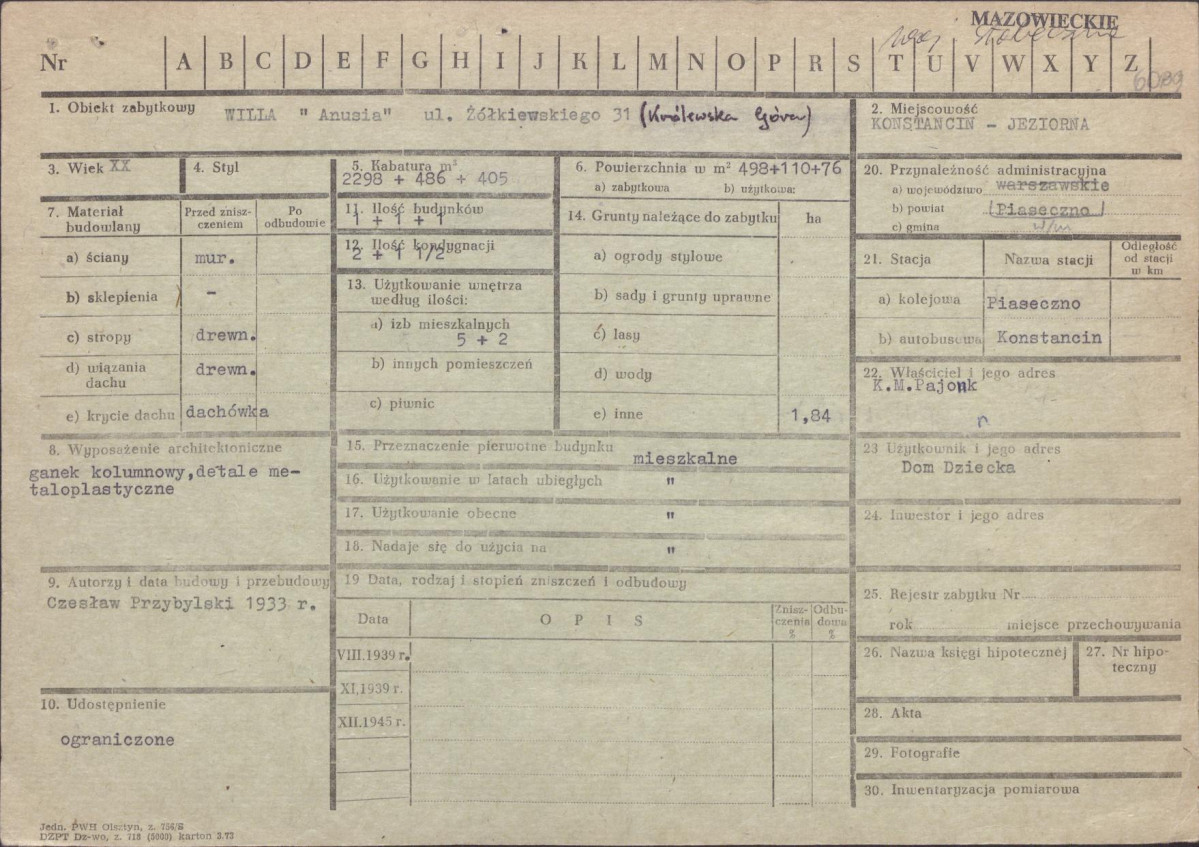 MAZOWIECKIE
woj. stołeczne
Nr A B C D E F G H I J K L M N O P R S T U V W X Y Z
6089
1. Obiekt zabytkowy WILLA " Anusia" ul. Żółkiewskiego 31 (Królewska Góra)
2. Miejscowość
KONSTANCIN - JEZIORNA
3. Wiek XX
4. Styl
5. Kabatura m³
2298 + 486 + 405
6. Powierzchnia w m² 498+110+76
a) zabytkowa b) użytkowa:
7. Materiał budowlany
Przed zniszczeniem
Po odbudowie
a) ściany mur.
b) sklepienia -
c) stropy drewn.
d) wiązania dachu drewn.
e) krycie dachu dachówka
11. Ilość budynków
1 + 1 + 1
12. Ilość kondygnacji
2 + 1 1/2
13. Użytkowanie wnętrza
według ilości:
a) izb mieszkalnych
5 + 2
b) innych pomieszczeń
c) piwnic
14. Grunty należące do zabytku ha
a) ogrody stylowe
b) sady i grunty uprawne
c) lasy
d) wody
e) inne 1,84
20. Przynależność administracyjna
a) województwo warszawskie
b) powiat (Piaseczno)
c) gmina w/m
21. Stacja
Nazwa stacji
Odległość
od stacji
w km
a) kolejowa Piaseczno
b) autobusowa Konstancin
22. Właściciel i jego adres
K.M.Pajonk
8. Wyposażenie architektoniczne
ganek kolumnowy,detale me-
taloplastyczne
15. Przeznaczenie pierwotne budynku mieszkalne
16. Użytkowanie w latach ubiegłych "
17. Użytkowanie obecne "
18. Nadaje się do użycia na "
23 Użytkownik i jego adres
Dom Dziecka
24. Inwestor i jego adres
9. Autorzy i data budowy i przebudowy
Czesław Przybylski 1933 r.
10. Udostępnienie
ograniczone
19 Data, rodzaj i stopień zniszczeń i odbudowy
Data
O P I S
Znisz-
czenia
%
Odbu-
dowa
%
VIII.1939 r.
XI.1939 r.
XII.1945 r.
25. Rejestr zabytku Nr
rok miejsce przechowywania
26. Nazwa księgi hipotecznej
27. Nr hipo-
teczny
28. Akta
29. Fotografie
30. Inwentaryzacja pomiarowa
Jedn. PWH Olsztyn, z. 756/S
DZPT Dz-wo, z. 718 (5000) karton 3.73